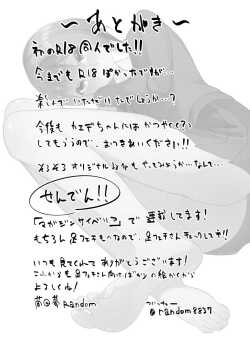 ～あとがき～
初のR18同人でした!!
今までもR18ばっかでしたが…
楽しんでいただけたでしょうか…？
今後も カエデちゃんには かつやくして
もらうので、おつきあいください!!
そろそろオリジナルみたいなのもやってみようか…なんて…
せんでん!!
「マガジンサイベリア」で連載してます!
もちろん足フェチものなので、足フェチさんチェックして下!!
いつも見てくれてありがとうございます!
これからも足フェチさん向けばっかの絵かくから
よろしくね!
Random
ついったー
@random8837